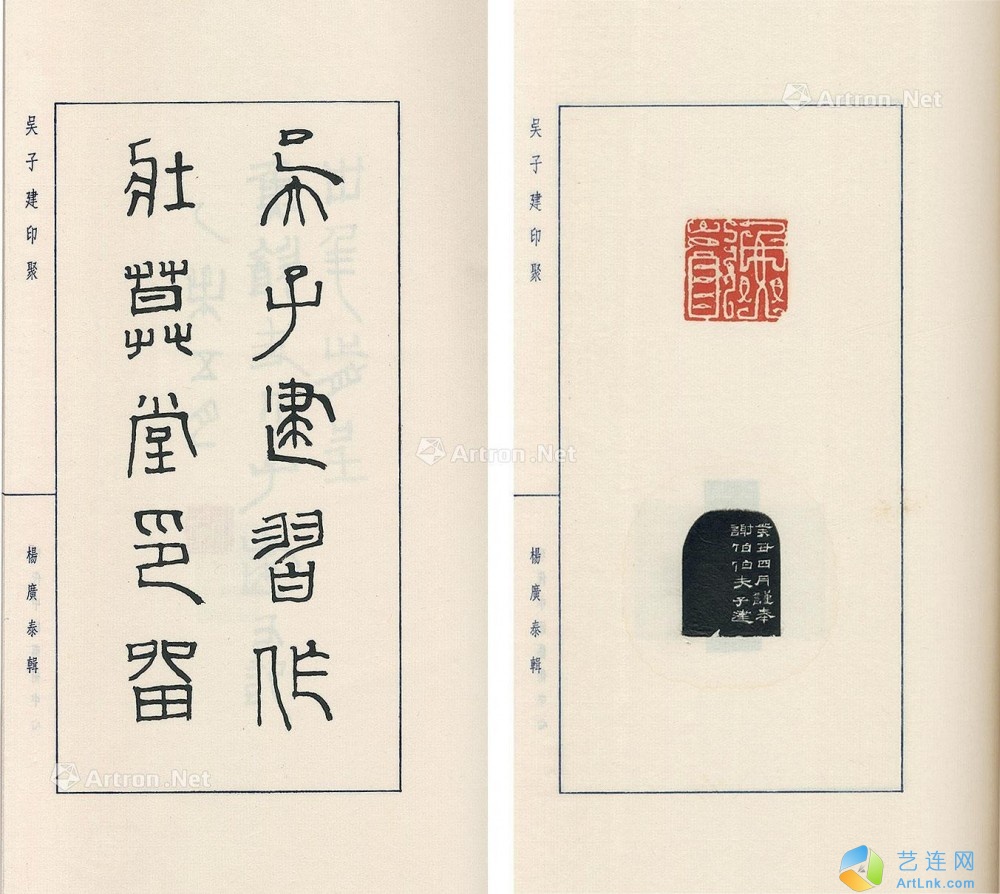 吳子建印聚
楊廣泰輯
吳子建習作
壯莫堂印留
吳子建印聚
楊廣泰輯
癸丑四月謹奉
謝伯伯夫子建
Artron.Net
Artron.Net
Artron.Net
艺连网
ArtLnk.com